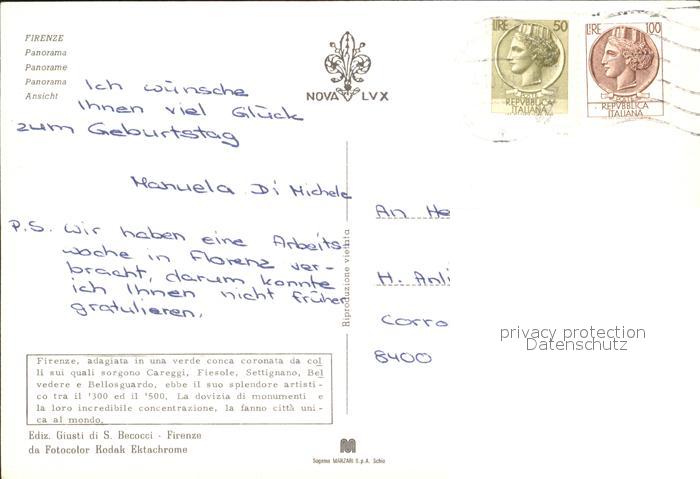 FIRENZE
Panorama
Panorame
Panorama
Ansicht
NOVA LVX
LIRE 50
POSTE
REPVBBLICA
ITALIANA
LIRE 100
POSTE
REPVBBLICA
ITALIANA
Ich wünsche
Ihnen viel Glück
zum Geburtstag
Manuela Di Michele
P.S. Wir haben eine Arbeits-
woche in Florenz ver-
bracht, darum konnte
ich Ihnen nicht früher
gratulieren.
Riproduzione vietata
An He
H. Anli
Corro
8400
privacy protection
Datenschutz
Firenze, adagiata in una verde conca coronata da col
li sui quali sorgono Careggi, Fiesole, Settignano, Bel
vedere e Bellosguardo, ebbe il suo splendore artisti-
co tra il '300 ed il '500. La dovizia di monumenti e
la loro incredibile concentrazione, la fanno città uni-
ca al mondo.
Ediz. Giusti di S. Becocci - Firenze
da Fotocolor Kodak Ektachrome
Sagena MANZARI S.p.A. Schio